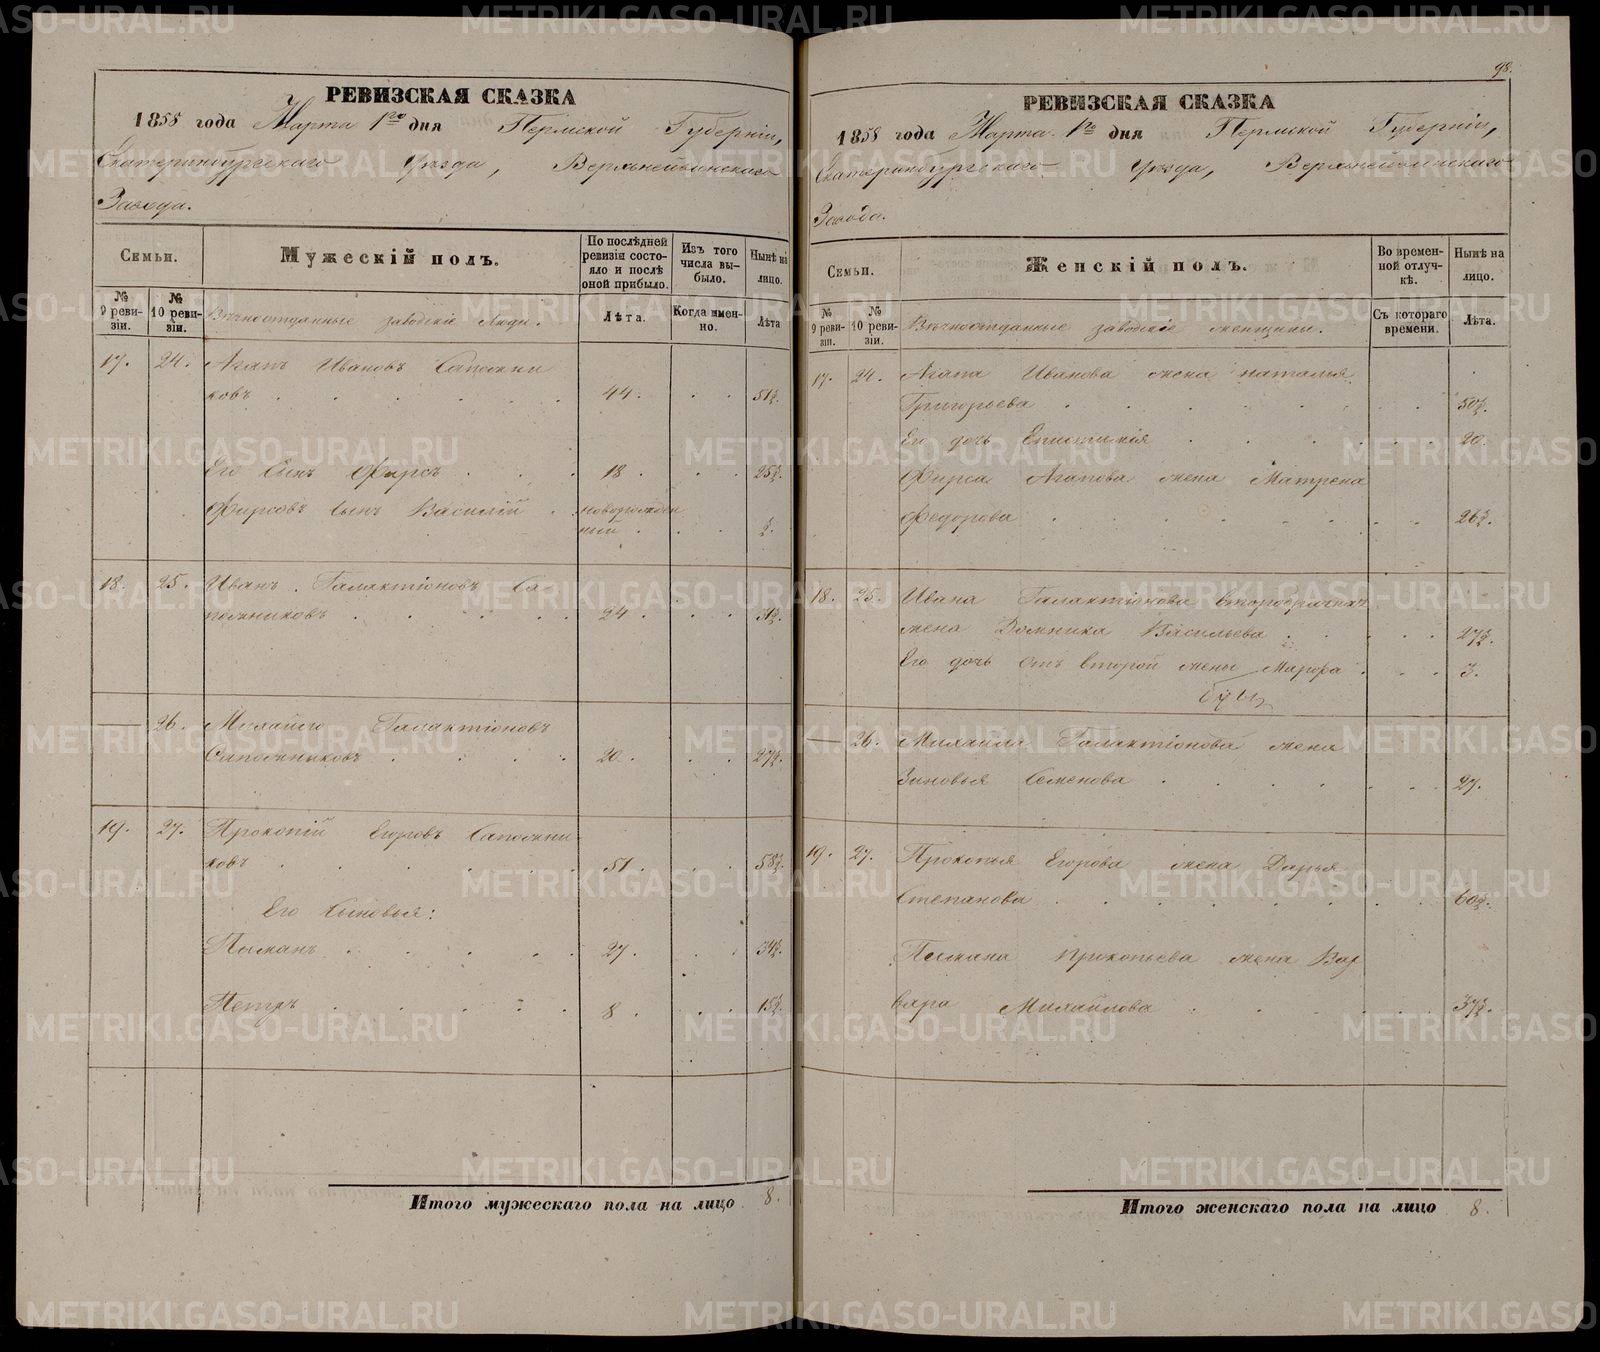 РЕВИЗСКАЯ СКАЗКА
1858 года Марта 1го дня Пермской Губерніи,
Екатеринбургскаго Уѣзда, Верхнейвинскаго
Завода.
Семьи.
Мужескій полъ.
По послѣдней ревизіи состояло и послѣ оной прибыло.
Изъ того числа выбыло.
Нынѣ на лицо.
№ 9 ревизіи.
№ 10 ревизіи.
Вѣчноотданные заводскіе люди.
Лѣта.
Когда именно.
Лѣта
17. 24. Агапъ Ивановъ Сапожни
ковъ 44. 51½.
Его сынъ Фирсъ 18 25½.
Фирсовъ сынъ Василій новорожден
ный ½.
18. 25. Иванъ Галактіоновъ Са
пожниковъ 24. 31½.
26. Михайло Галактіоновъ
Сапожниковъ 20. 27½.
19. 27. Прокопій Егоровъ Сапожни
ковъ 51. 58½.
Его сыновья:
27. 34½.
Петръ 8. 15½.
Итого мужескаго пола на лицо 8.
98.
РЕВИЗСКАЯ СКАЗКА
1858 года Марта 1го дня Пермской Губерніи,
Екатеринбургскаго Уѣзда, Верхнейвинскаго
Завода.
Семьи.
Женскій полъ.
Во временной отлучкѣ.
Нынѣ на лицо.
№ 9 ревизіи.
№ 10 ревизіи.
Вѣчноотданные заводскіе женщины.
Съ котораго времени.
Лѣта.
17. 24. Агапа Иванова жена Наталья
Григорьева 50½.
Его дочь Епистимія 20.
Фирса Агапова жена Матрена
Федорова 26½.
18. 25. Ивана Галактіонова второбрачная
жена Домника Васильева 27½.
Его дочь отъ второй жены 3.
26. Михаила Галактіонова жена
Зиновья Семенова 27.
19. 27. Прокопья Егорова жена Дарья
Степанова 60½.
Прокопьева жена Вар
вара Михайлова 37½.
Итого женскаго пола на лицо 8.
METRIKI.GASO-URAL.RU